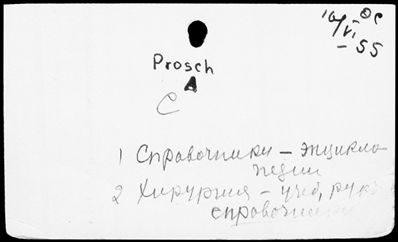 16/VI
- 55
Prosch
С
1 Справочники – энцикло
педии
2 Хирургия – учеб, рук
справочники